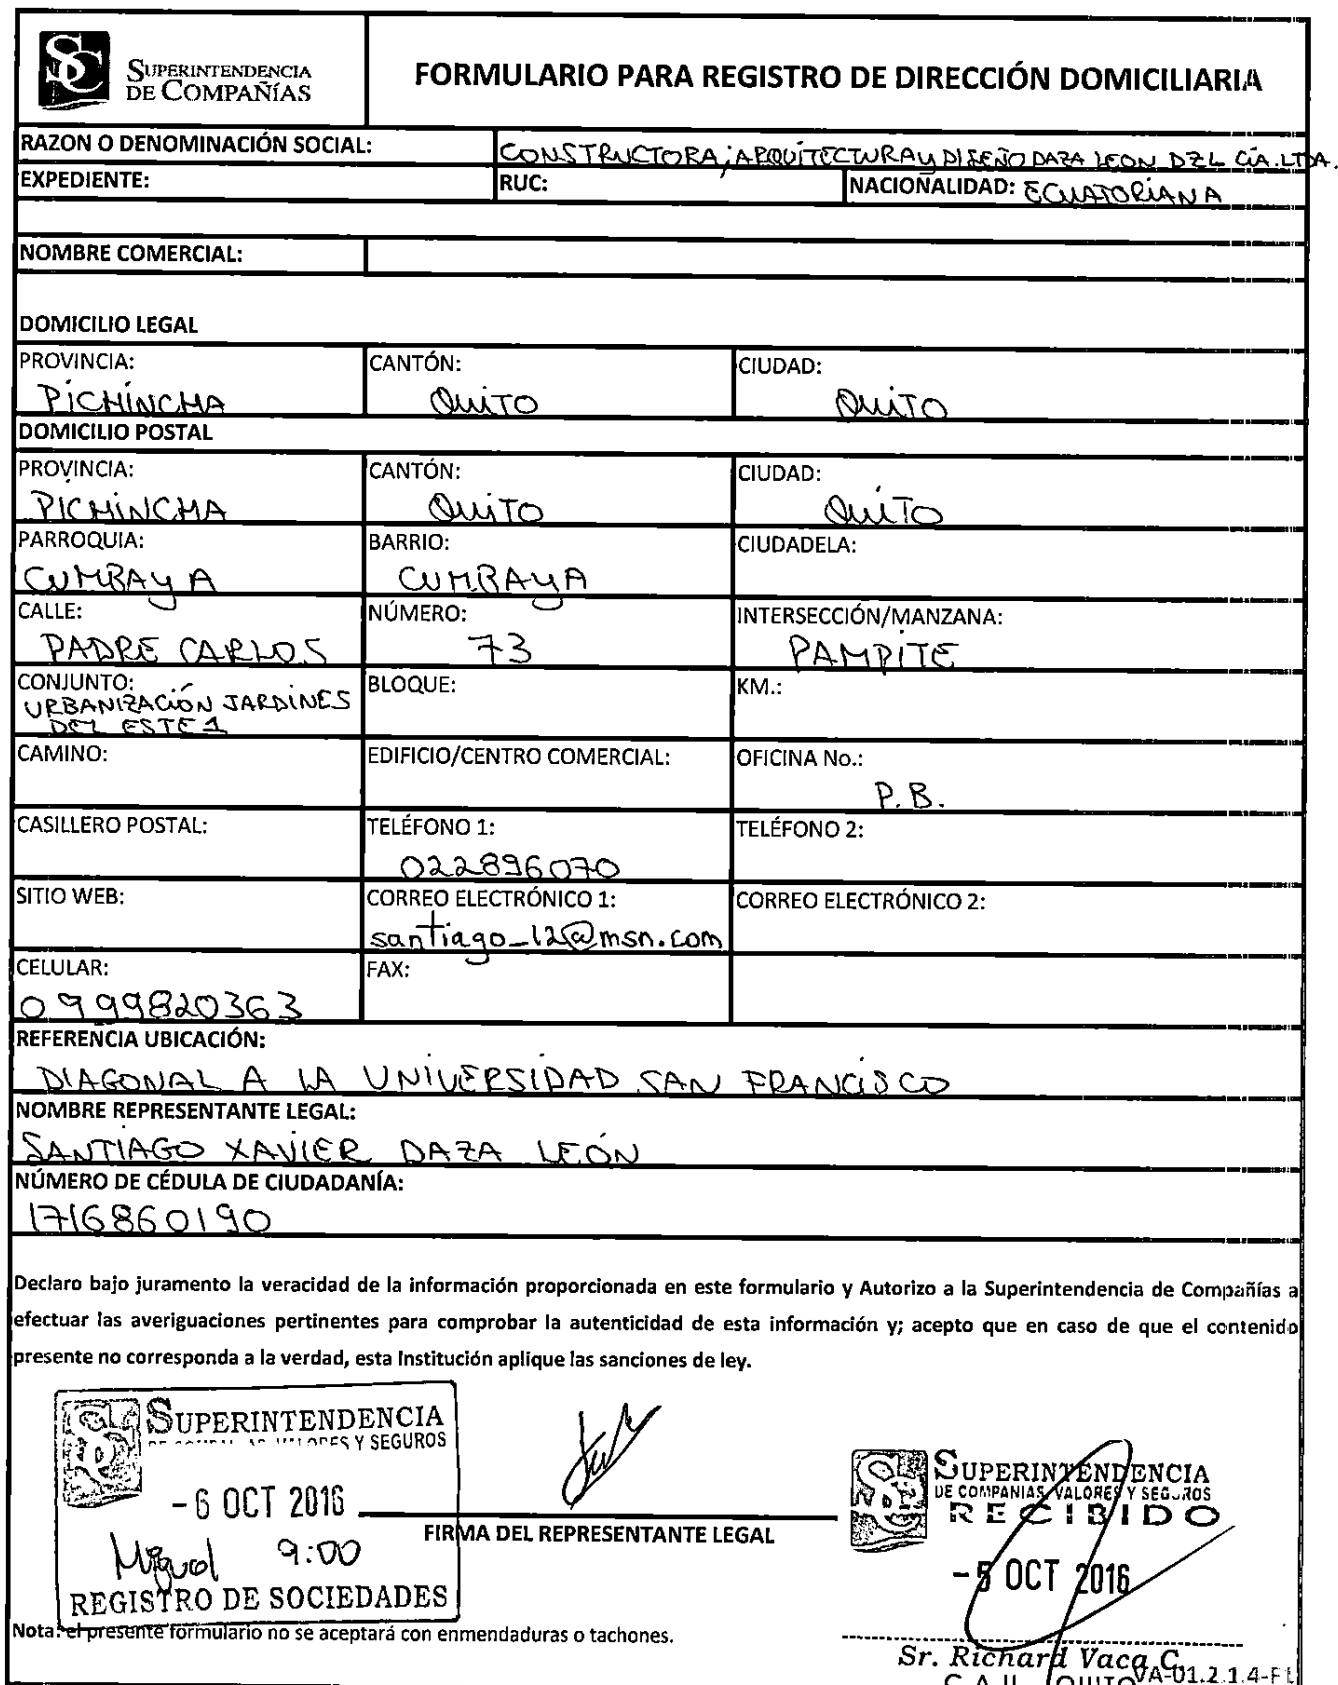 SUPERINTENDENCIA
DE COMPAÑÍAS
FORMULARIO PARA REGISTRO DE DIRECCIÓN DOMICILIARIA
RAZON O DENOMINACIÓN SOCIAL: CONSTRUCTORA, ARQUITECTURA y DISEÑO DAZA LEON DZL CÍA. LTDA.
EXPEDIENTE: RUC: NACIONALIDAD: ECUATORIANA
NOMBRE COMERCIAL:
DOMICILIO LEGAL
PROVINCIA: CANTÓN: CIUDAD:
PICHINCHA QUITO QUITO
DOMICILIO POSTAL
PROVINCIA: CANTÓN: CIUDAD:
PICHINCHA QUITO QUITO
PARROQUIA: BARRIO: CIUDADELA:
CUMBAYA CUMBAYA
CALLE: NÚMERO: INTERSECCIÓN/MANZANA:
PADRE CARLOS 73 PAMPITE
CONJUNTO: BLOQUE: KM.:
URBANIZACIÓN JARDINES
DEL ESTE 1
CAMINO: EDIFICIO/CENTRO COMERCIAL: OFICINA No.:
P.B.
CASILLERO POSTAL: TELÉFONO 1: TELÉFONO 2:
022896070
SITIO WEB: CORREO ELECTRÓNICO 1: CORREO ELECTRÓNICO 2:
santiago_12@msn.com
CELULAR: FAX:
0999820363
REFERENCIA UBICACIÓN:
DIAGONAL A LA UNIVERSIDAD SAN FRANCISCO
NOMBRE REPRESENTANTE LEGAL:
SANTIAGO XAVIER DAZA LEÓN
NÚMERO DE CÉDULA DE CIUDADANÍA:
1716860190
Declaro bajo juramento la veracidad de la información proporcionada en este formulario y Autorizo a la Superintendencia de Compañías a
efectuar las averiguaciones pertinentes para comprobar la autenticidad de esta información y; acepto que en caso de que el contenido
presente no corresponda a la verdad, esta Institución aplique las sanciones de ley.
SUPERINTENDENCIA
VALORES Y SEGUROS
- 6 OCT 2016
Miguel 9:00
REGISTRO DE SOCIEDADES
FIRMA DEL REPRESENTANTE LEGAL
SUPERINTENDENCIA
DE COMPAÑIAS, VALORES Y SEGUROS
RECIBIDO
- 5 OCT 2016
Nota: el presente formulario no se aceptará con enmendaduras o tachones.
Sr. Richard Vaca C.
C.A.U. QUITO
VA-01.2.1.4-F1